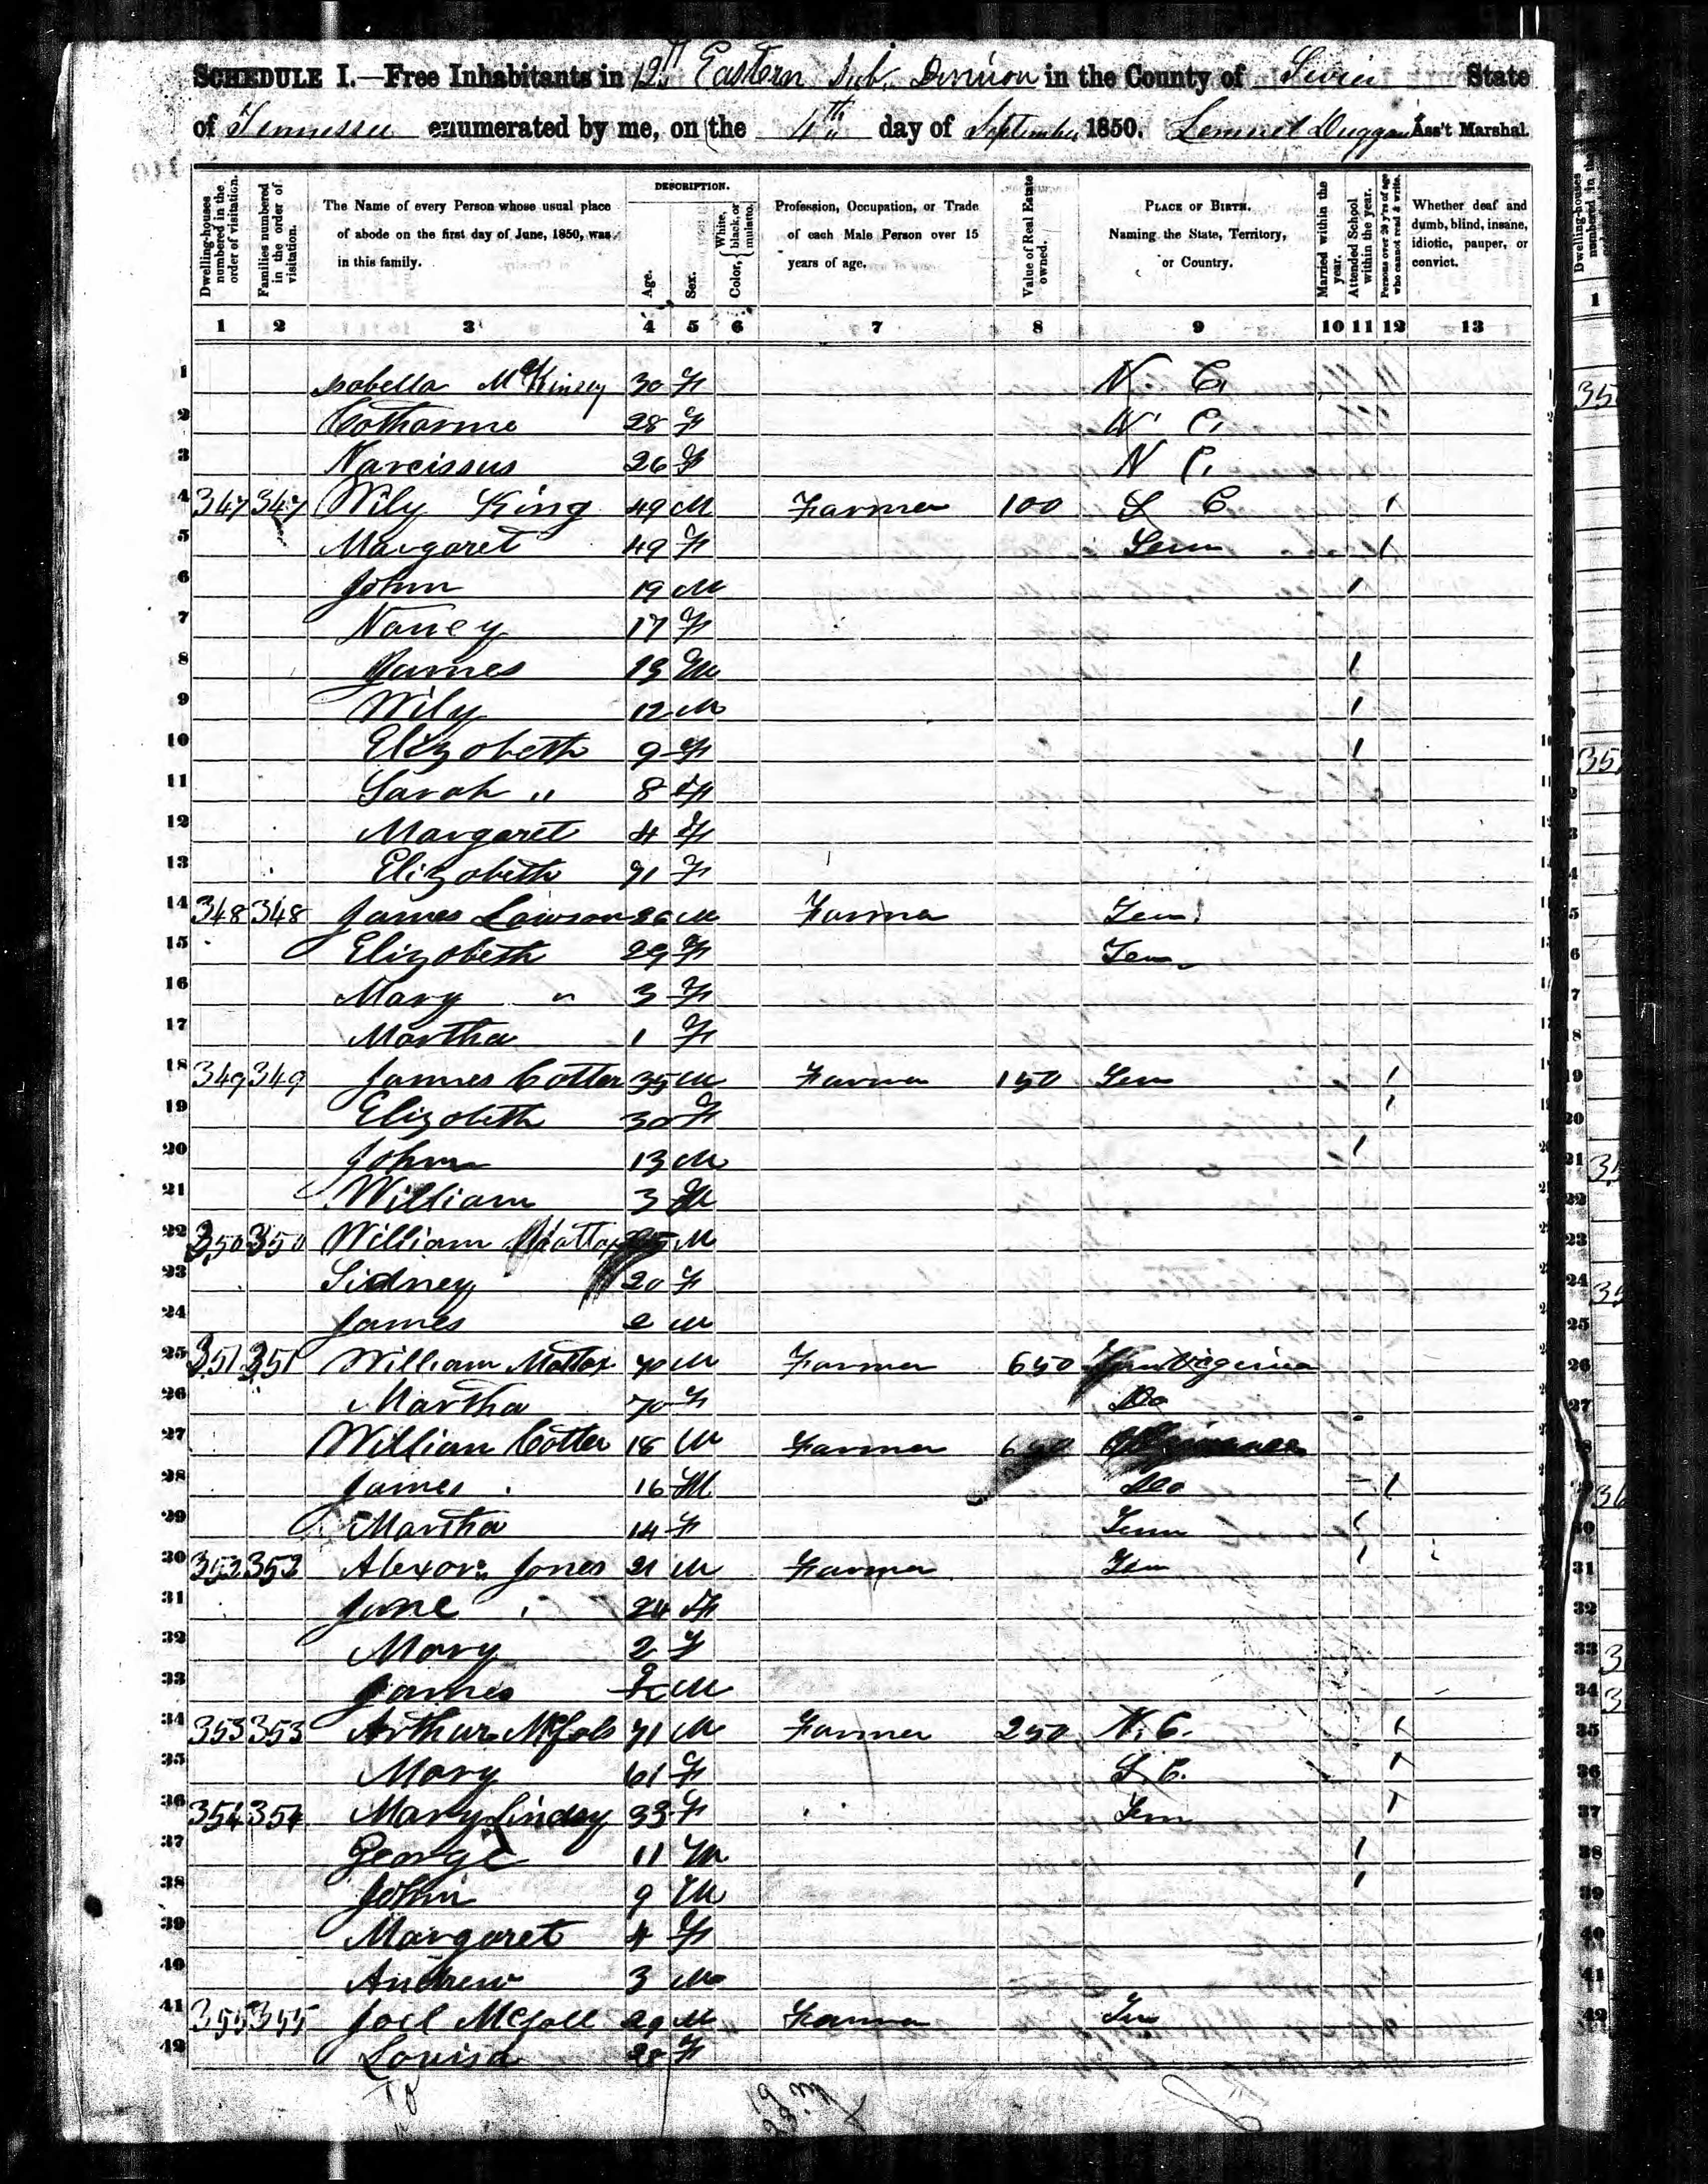 SCHEDULE I.—Free Inhabitants in 12th Eastern Sub. Division in the County of Sevier State
of Tennessee enumerated by me, on the 4th day of September 1850. Lemuel Duggan Ass't Marshal.
Dwelling-houses numbered in the order of visitation.
Families numbered in the order of visitation.
The Name of every Person whose usual place of abode on the first day of June, 1850, was in this family.
DESCRIPTION.
Age.
Sex.
Color, { White, black, or mulatto.
Profession, Occupation, or Trade of each Male Person over 15 years of age.
Value of Real Estate owned.
PLACE OF BIRTH. Naming the State, Territory, or Country.
Married within the year.
Attended School within the year.
Persons over 20 y'rs of age who cannot read & write.
Whether deaf and dumb, blind, insane, idiotic, pauper, or convict.
1 2 3 4 5 6 7 8 9 10 11 12 13
1 Isobella McKinsey 30 F N. C.
2 Catharine 28 F N. C.
3 Narcissus 26 F N C.
4 347 347 Wily King 49 M Farmer 100 S C 1
5 Margaret 49 F Tenn 1
6 John 19 M 1
7 Nancy 17 F
8 James 13 M 1
9 Wily 12 M 1
10 Elizabeth 9 F 1
11 Sarah " 8 F
12 Margaret 4 F
13 Elizabeth 91 F
14 348 348 James Lawson 26 M Farmer Ten.
15 Elizabeth 29 F Ten
16 Mary " 3 F
17 Martha 1 F
18 349 349 James Cotter 35 M Farmer 150 Ten 1
19 Elizabeth 30 F 1
20 John 13 M 1
21 William 3 M
22 350 350 William Mattox 25 M
23 Sidney 20 F
24 James 2 M
25 351 351 William Mattox 70 M Farmer 650 Virginia
26 Martha 70 F Do
27 William Cotter 18 M Farmer 650
28 James 16 M Do 1
29 Martha 14 F Tenn 1
30 352 352 Jones 21 M Farmer Ten 1
31 Jane 24 F
32 Mary 2 F
33 James M
34 353 353 Arthur 71 M Farmer 250 N. C. 1
35 Mary 61 F S. C. 1
36 354 354 Mary Lindsy 33 F Tenn 1
37 George 11 M 1
38 John 9 M 1
39 Margaret 4 F
40 Andrew 3 M
41 355 355 Joel McFall 29 M Farmer Ten
42 Louisa 28 F